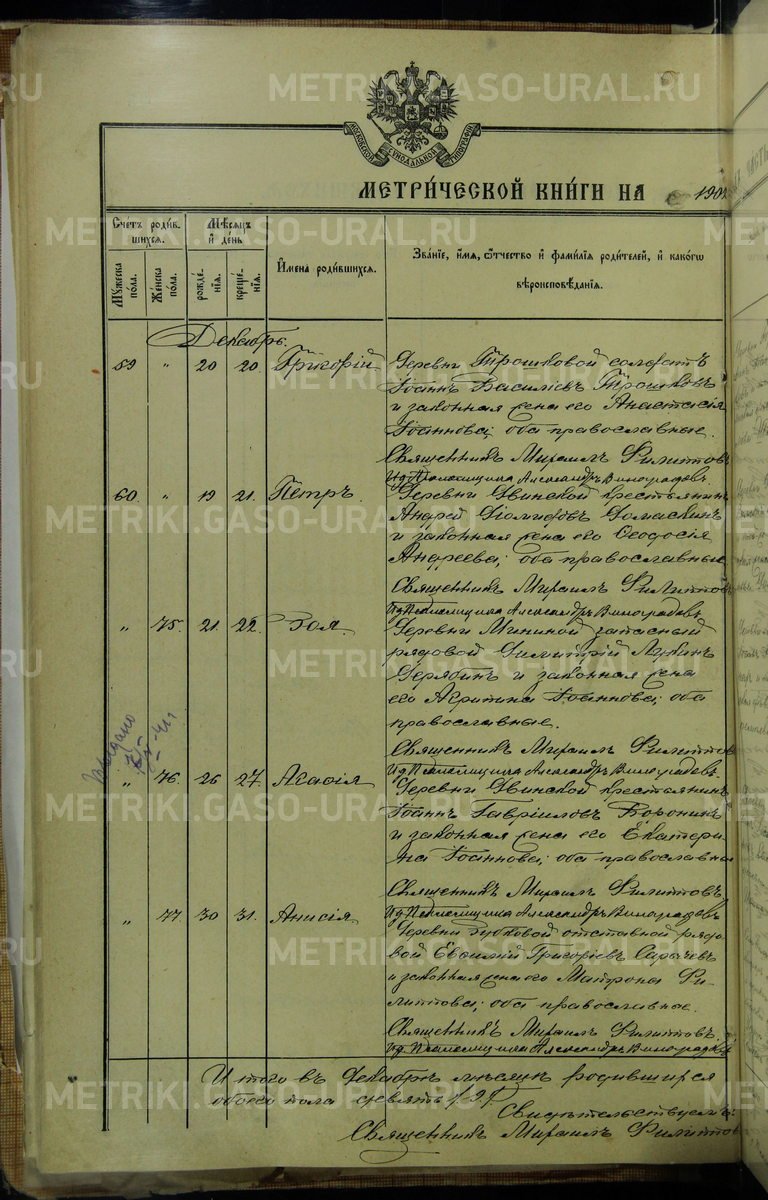 МОСКОВСКОЙ СѴНОДАЛЬНОЙ ТИПОГРАФІИ
МЕТРИ́ЧЕСКОЙ КНИ́ГИ НА 1902
Счетъ роди́вшихся.
Мѣсяцъ и день
Имена роди́вшихся.
Зва́ніе, и́мя, о́тчество и фами́лія роди́телей, и како́гѡ вѣроисповѣ́данія.
Му́жеска по́ла.
Же́нска по́ла.
рожде́нія.
креще́нія.
Декабрь.
59 " 20 20 Григорій
Деревни Трошковой солдатъ
Іоаннъ Василіевъ Трошковъ
и законная жена его Анастасія
Іоаннова; оба православные.
Священникъ Михаилъ Филиттовъ
И.д. Псаломщика Александръ Виноградовъ.
60. " 19 21. Петръ.
Деревни Двинской крестьянинъ
Андрей Діомидовъ Домаскинъ
и законная жена его Ѳеодосія
Андреева; оба православные
Священникъ Михаилъ Филиттовъ
И.д. Псаломщика Александръ Виноградовъ
" 75. 21. 22. Зоя.
Деревни Мининой запасный
рядовой Димитрій Лукинъ
Дерябинъ и законная жена
его Агрипина Іоаннова; оба
православные.
Священникъ Михаилъ Филиттовъ
И.д. Псаломщика Александръ Виноградовъ.
" 76. 26 27. Агафія
Деревни Двинской крестьянинъ
Іоаннъ Гавріиловъ Воронинъ
и законная жена его Екатери-
на Іоаннова; оба православные
Священникъ Михаилъ Филиттовъ
И.д. Псаломщика Александръ Виноградовъ
" 77. 30 31. Анисія
Деревни Зубковой отставной рядо-
вой Евѳимій Григоріевъ Сарычевъ
и законная жена его Матрона Фи-
литтова; оба православные.
Священникъ Михаилъ Филиттовъ
И.д. Псаломщика Александръ Виноградовъ
Итого въ Декабрѣ мѣсяцѣ родившихся
обоего пола девять /9/
Свидѣтельствуемъ:
Священникъ Михаилъ Филиттовъ
METRIKI.GASO-URAL.RU